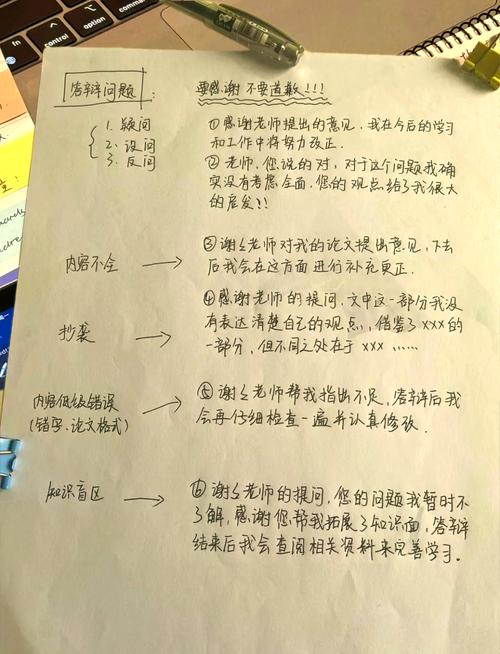 答辩问题：
要感谢 不要道歉!!!
1. 疑问
2. 设问
3. 反问
①感谢老师提出的意见，我在今后的学习
和工作中将努力改正.
②老师，您说的对，对于这个问题我确
实没有考虑全面，您的观点给了我很大
的启发!!
内容不全
③谢谢老师对我的论文提出意见，下去
后我会在这方面进行补充更正.
抄袭
④感谢老师的提问，文中这一部分我没
有表达清楚自己的观点，借鉴了xxx的
一部分，但不同之处在于xxx ……
内容低级错误
(错字、论文格式)
⑤谢谢老师帮我指出不足，答辩后我
会再仔细检查一遍并认真修改.
知识盲区
⑥谢谢老师的提问，您的问题我暂时不
了解，感谢您帮我拓展了知识面，答辩
结束后我会查阅相关资料来完善学习.
control
option
command